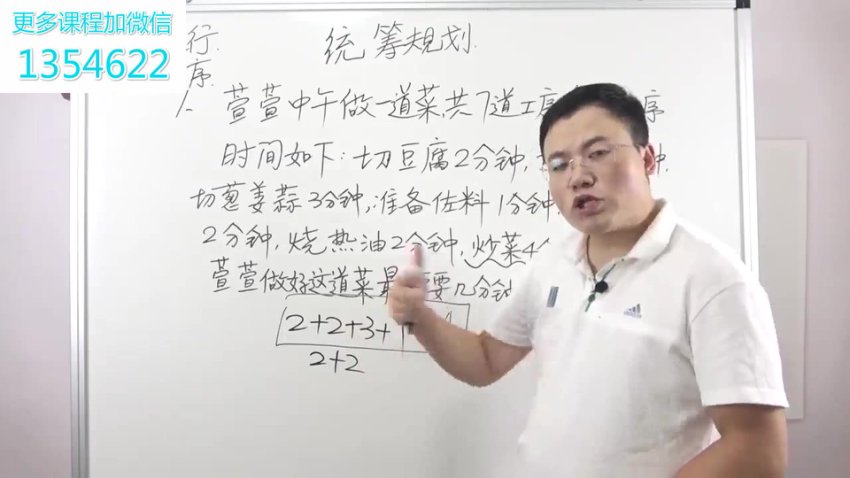 更多课程加微信
1354622
行.
序.
统筹规划.
1、萱萱中午做一道菜,共7道工序
序
时间如下:切豆腐2分钟,
钟.
切葱姜蒜3分钟,准备佐料1分钟,
2分钟,烧热油2分钟,炒菜4
萱萱做好这道菜最 要几分钟
2+2+3+
2+2
adidas